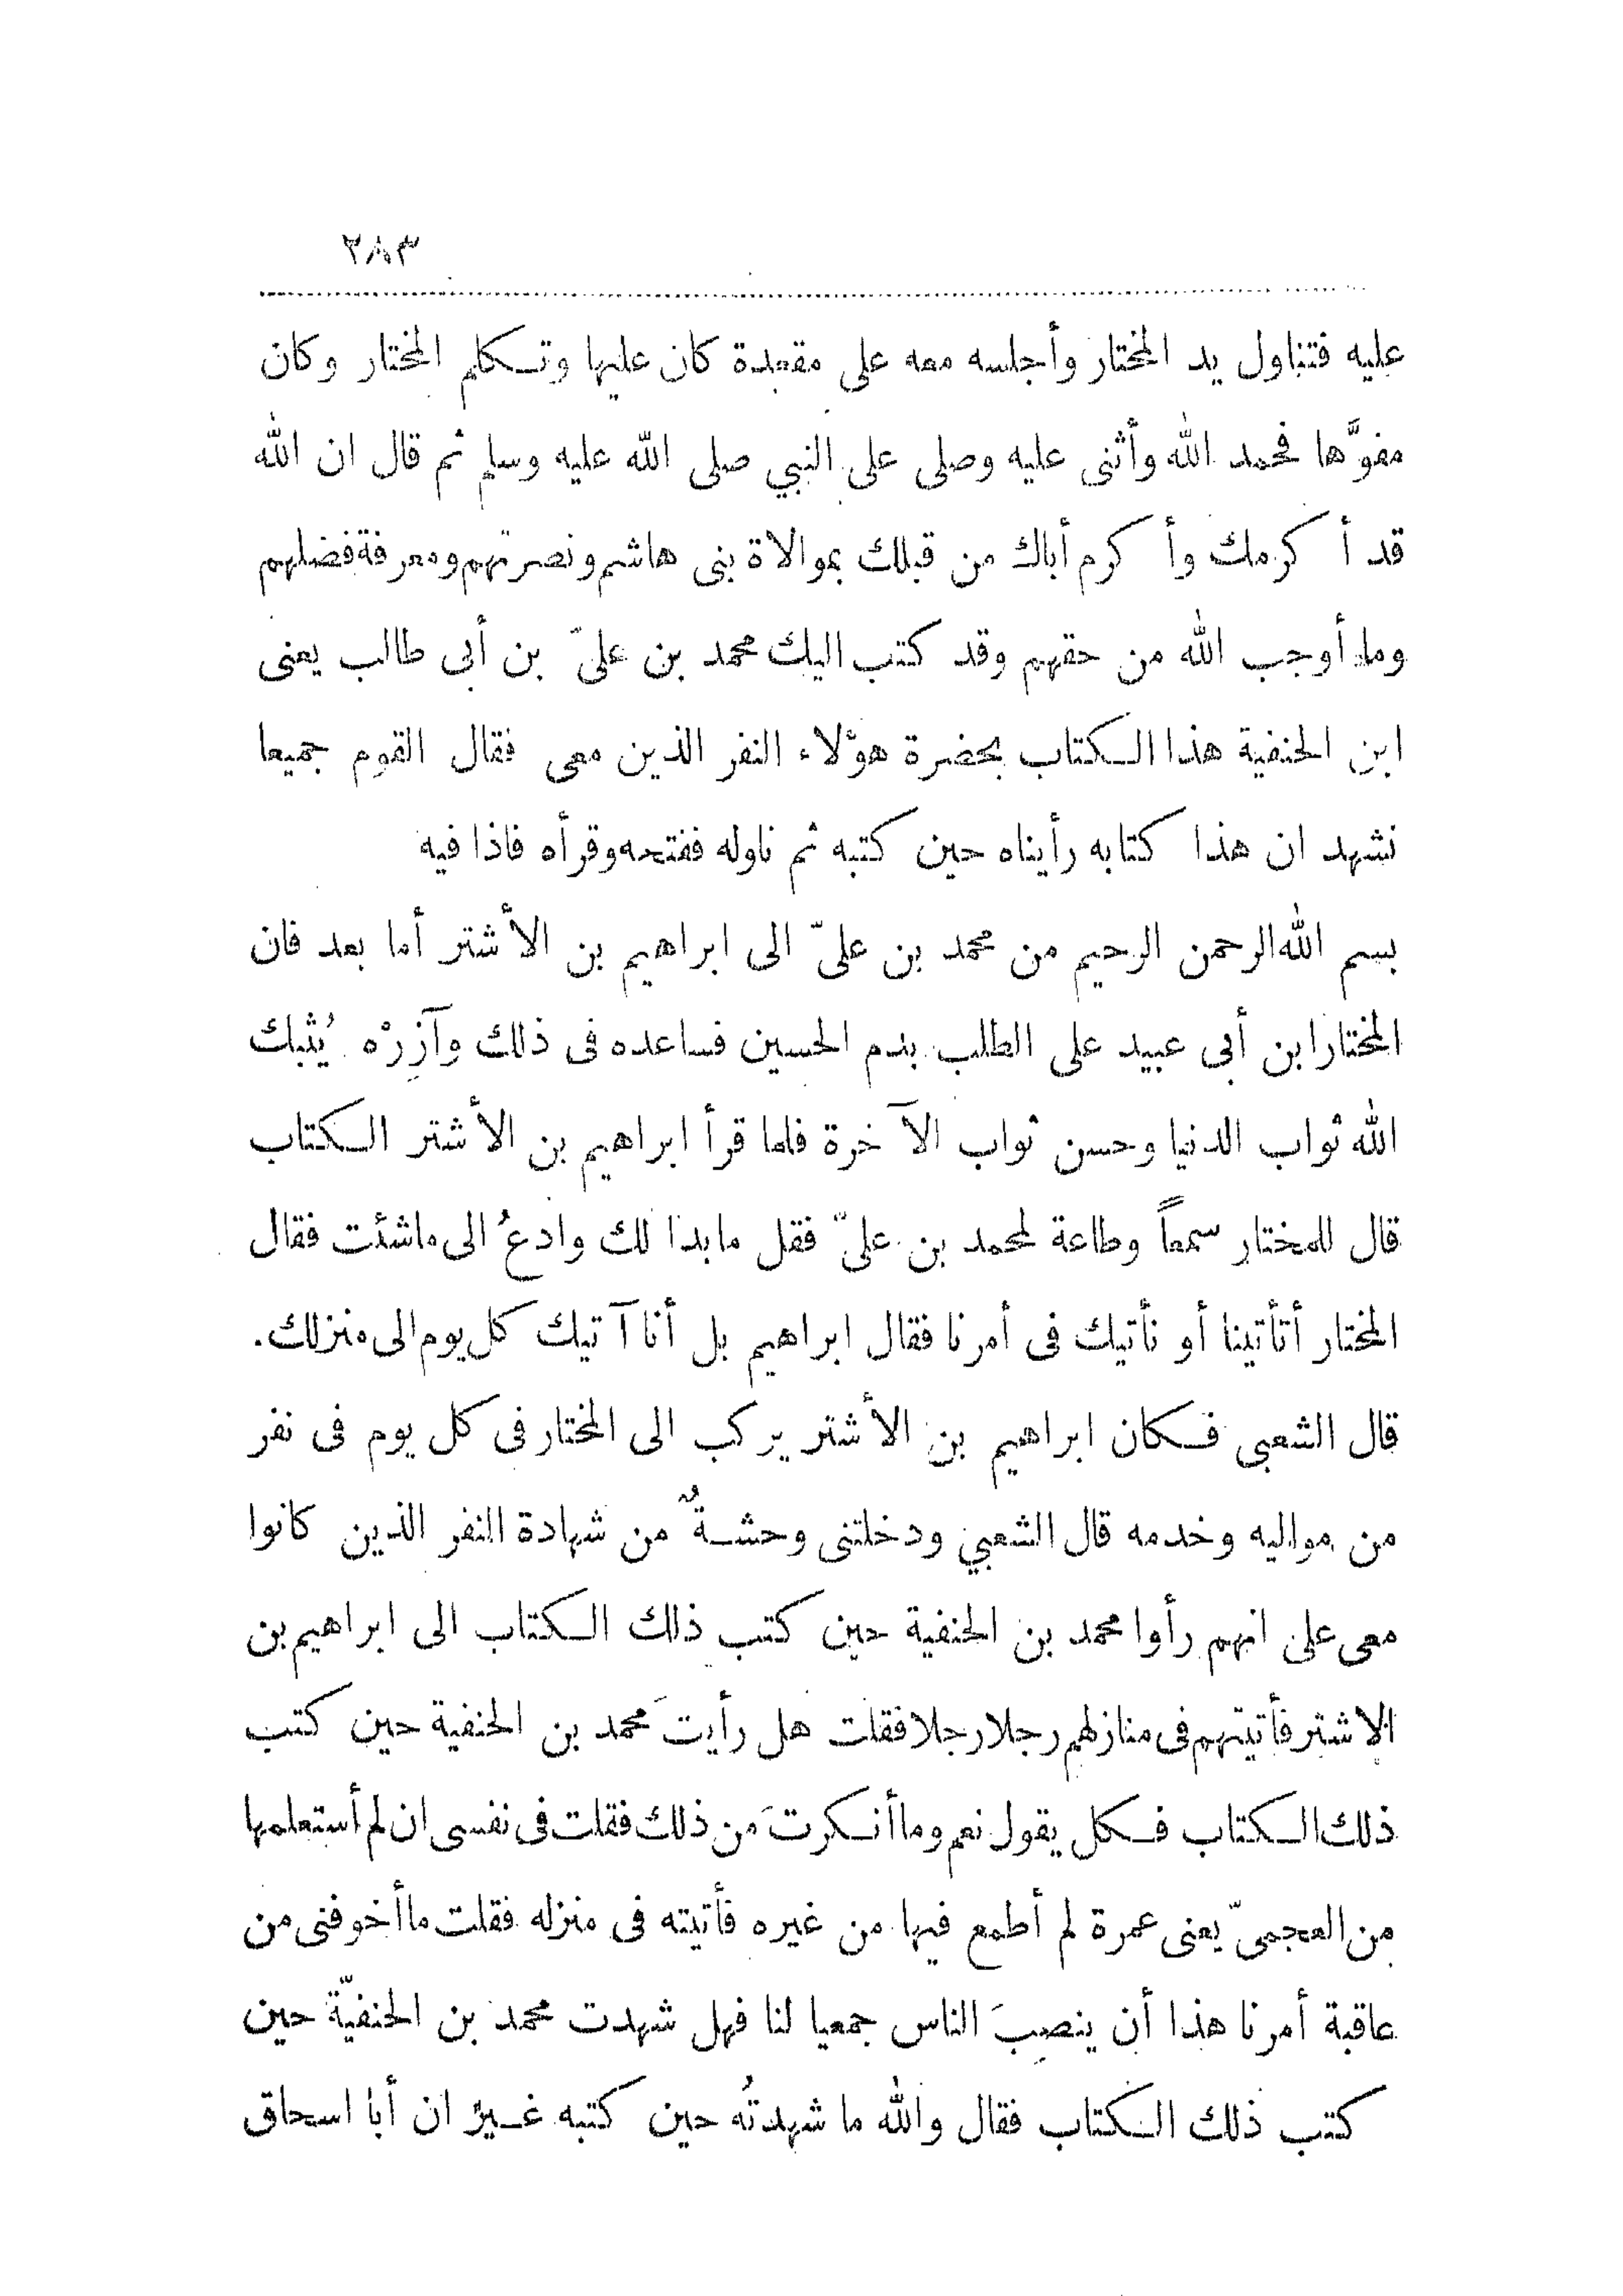 ٢٨٣
عليه فتناول يد المختار وأجلسه معه على مقعدة كان عليها وتكلم المختار وكان
مفوَّها فحمد الله وأثنى عليه وصلى على النبي صلى الله عليه وسلم ثم قال ان الله
قد أكرمك وأكرم أباك من قبلك بموالاة بنى هاشم ونصرتهم ومعرفة فضلهم
وما أوجب الله من حقهم وقد كتب اليك محمد بن علىّ بن أبى طالب يعنى
ابن الحنفية هذا الكتاب بحضرة هؤلاء النفر الذين معى فقال القوم جميعا
نشهد ان هذا كتابه رأيناه حين كتبه ثم ناوله ففتحه وقرأه فاذا فيه
بسم الله الرحمن الرحيم من محمد بن علىّ الى ابراهيم بن الأشتر أما بعد فان
المختار ابن أبى عبيد على الطلب بدم الحسين فساعده فى ذلك وآزِرْه يُثبك
الله ثواب الدنيا وحسن ثواب الآخرة فلما قرأ ابراهيم بن الأشتر الكتاب
قال للمختار سمعاً وطاعة لمحمد بن علىّ فقل مابدا لك وادعُ الى ماشئت فقال
المختار أتأتينا أو نأتيك فى أمرنا فقال ابراهيم بل أنا آتيك كل يوم الى منزلك.
قال الشعبى فكان ابراهيم بن الأشتر يركب الى المختار فى كل يوم فى نفر
من مواليه وخدمه قال الشعبي ودخلتنى وحشةٌ من شهادة النفر الذين كانوا
معى على انهم رأوا محمد بن الحنفية حين كتب ذلك الكتاب الى ابراهيم بن
الاشتر فأتيتهم فى منازلهم رجلا رجلا فقلت هل رأيتَ محمد بن الحنفية حين كتب
ذلك الكتاب فكل يقول نعم وما أنكرتَ من ذلك فقلت فى نفسى ان لم أستعلمها
من العجمىّ يعنى عمرة لم أطمع فيها من غيره فأتيته فى منزله فقلت ما أخوفنى من
عاقبة أمرنا هذا أن ينصِبَ الناس جمعيا لنا فهل شهدت محمد بن الحنفيّة حين
كتب ذلك الكتاب فقال والله ما شهدتُه حين كتبه غير ان أبا اسحاق